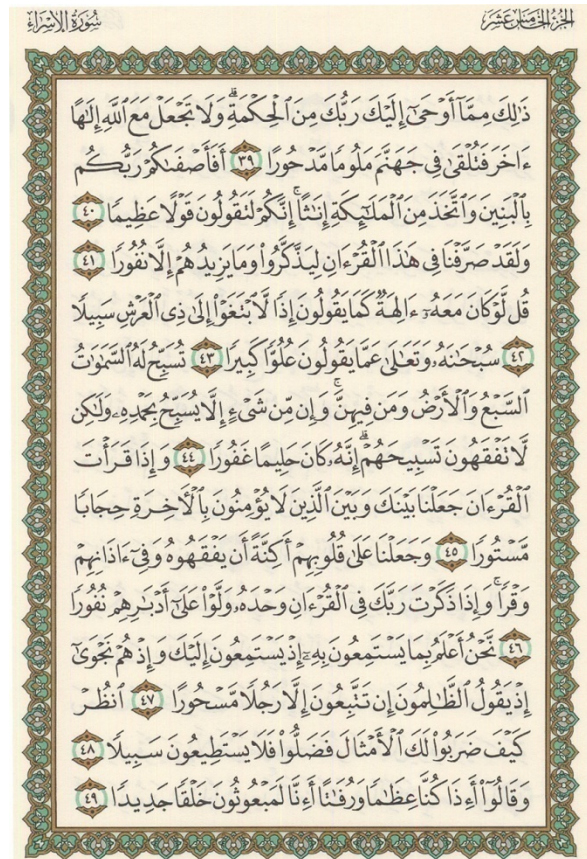 الجزء الخامس عشر
سورة الإسراء
ذَٰلِكَ مِمَّآ أَوْحَىٰٓ إِلَيْكَ رَبُّكَ مِنَ ٱلْحِكْمَةِ ۗ وَلَا تَجْعَلْ مَعَ ٱللَّهِ إِلَٰهًا
ءَاخَرَ فَتُلْقَىٰ فِى جَهَنَّمَ مَلُومًا مَّدْحُورًا ٣٩ أَفَأَصْفَىٰكُمْ رَبُّكُم
بِٱلْبَنِينَ وَٱتَّخَذَ مِنَ ٱلْمَلَٰٓئِكَةِ إِنَٰثًا ۚ إِنَّكُمْ لَتَقُولُونَ قَوْلًا عَظِيمًا ٤٠
وَلَقَدْ صَرَّفْنَا فِى هَٰذَا ٱلْقُرْءَانِ لِيَذَّكَّرُوا۟ وَمَا يَزِيدُهُمْ إِلَّا نُفُورًا ٤١
قُل لَّوْ كَانَ مَعَهُۥٓ ءَالِهَةٌ كَمَا يَقُولُونَ إِذًا لَّٱبْتَغَوْا۟ إِلَىٰ ذِى ٱلْعَرْشِ سَبِيلًا
٤٢ سُبْحَٰنَهُۥ وَتَعَٰلَىٰ عَمَّا يَقُولُونَ عُلُوًّا كَبِيرًا ٤٣ تُسَبِّحُ لَهُ ٱلسَّمَٰوَٰتُ
ٱلسَّبْعُ وَٱلْأَرْضُ وَمَن فِيهِنَّ ۚ وَإِن مِّن شَىْءٍ إِلَّا يُسَبِّحُ بِحَمْدِهِۦ وَلَٰكِن
لَّا تَفْقَهُونَ تَسْبِيحَهُمْ ۗ إِنَّهُۥ كَانَ حَلِيمًا غَفُورًا ٤٤ وَإِذَا قَرَأْتَ
ٱلْقُرْءَانَ جَعَلْنَا بَيْنَكَ وَبَيْنَ ٱلَّذِينَ لَا يُؤْمِنُونَ بِٱلْءَاخِرَةِ حِجَابًا
مَّسْتُورًا ٤٥ وَجَعَلْنَا عَلَىٰ قُلُوبِهِمْ أَكِنَّةً أَن يَفْقَهُوهُ وَفِىٓ ءَاذَانِهِمْ
وَقْرًا ۚ وَإِذَا ذَكَرْتَ رَبَّكَ فِى ٱلْقُرْءَانِ وَحْدَهُۥ وَلَّوْا۟ عَلَىٰٓ أَدْبَٰرِهِمْ نُفُورًا
٤٦ نَّحْنُ أَعْلَمُ بِمَا يَسْتَمِعُونَ بِهِۦٓ إِذْ يَسْتَمِعُونَ إِلَيْكَ وَإِذْ هُمْ نَجْوَىٰٓ
إِذْ يَقُولُ ٱلظَّٰلِمُونَ إِن تَتَّبِعُونَ إِلَّا رَجُلًا مَّسْحُورًا ٤٧ ٱنظُرْ
كَيْفَ ضَرَبُوا۟ لَكَ ٱلْأَمْثَالَ فَضَلُّوا۟ فَلَا يَسْتَطِيعُونَ سَبِيلًا ٤٨
وَقَالُوٓا۟ أَءِذَا كُنَّا عِظَٰمًا وَرُفَٰتًا أَءِنَّا لَمَبْعُوثُونَ خَلْقًا جَدِيدًا ٤٩